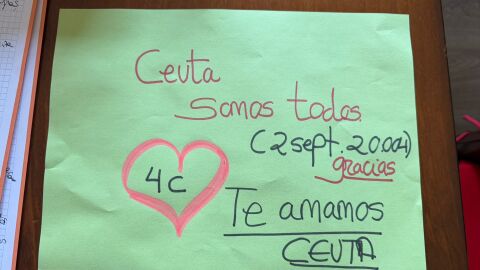 Ceuta
somos todos.
(2 sept. 20.004)
gracias
4c
Te amamos
CEUTA